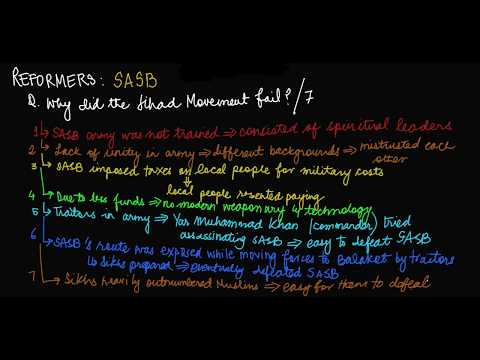 REFORMERS: SASB
Q. Why did the Jihad Movement fail? /7
1 → SASB army was not trained ⇒ consisted of spiritual leaders
2 → Lack of unity in army ⇒ different backgrounds ⇒ mistrusted each other
3 → SASB imposed taxes on local people for military costs
⇒ local people resented paying
4 → Due to less funds ⇒ no modern weaponry & technology
5 → Traitors in army ⇒ Yar Muhammad Khan (commander) tried
assassinating SASB ⇒ easy to defeat SASB
6 → SASB's route was exposed while moving forces to Balakot by traitors
↳ Sikhs prepared ⇒ eventually defeated SASB
7 → Sikhs heavily outnumbered Muslims ⇒ easy for them to defeat